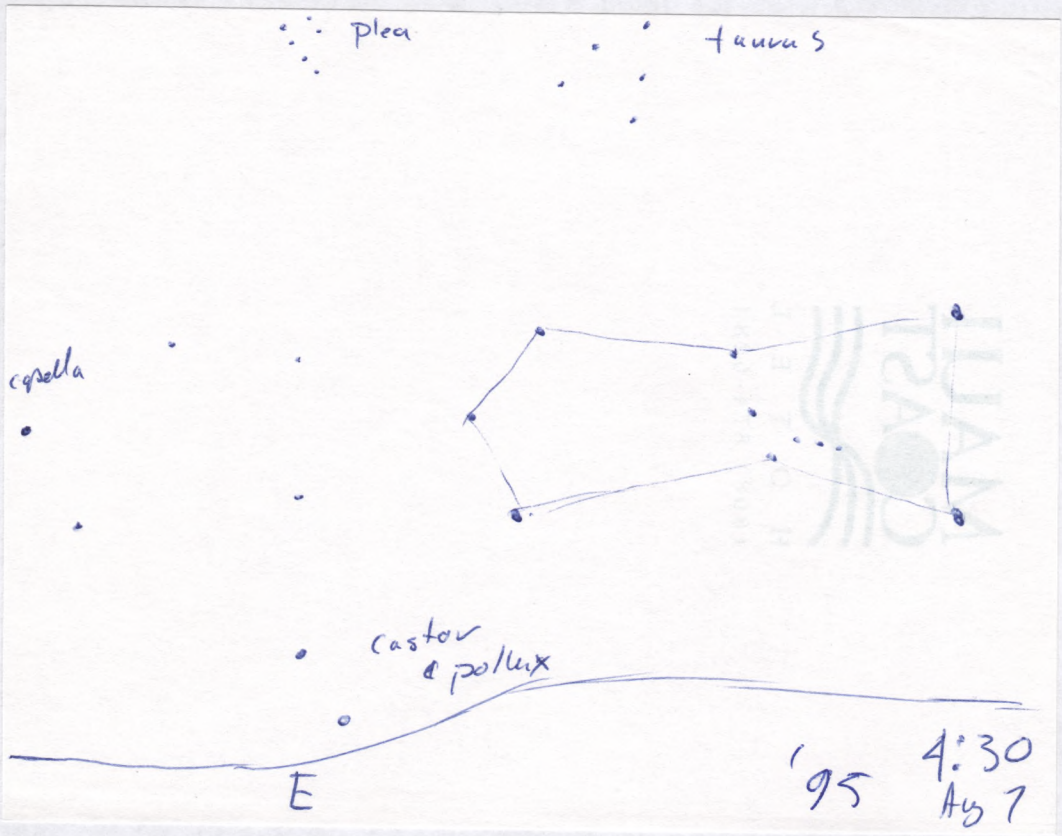 plea
taurus
capella
castor
& pollux
E
'95
4:30
Aug 7